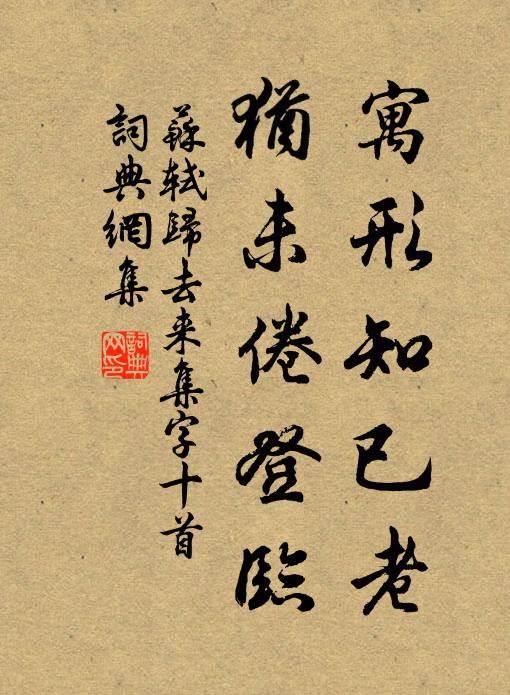 寓形知已老
猶未倦登臨
蘇軾歸去来集字十首
詞典網集
詞典網印